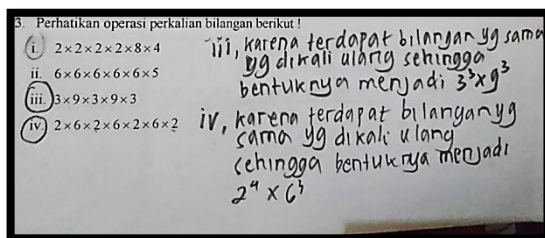 3. Perhatikan operasi perkalian bilangan berikut !
i. 2×2×2×2×8×4
ii. 6×6×6×6×6×5
iii. 3×9×3×9×3
iv. 2×6×2×6×2×6×2
iii, karena terdapat bilangan yg sama
yg dikali ulang sehingga
bentuknya menjadi 3³×9³
iv, karena terdapat bilangan yg
sama yg dikali ulang
sehingga bentuknya menjadi
2⁴ × 6³